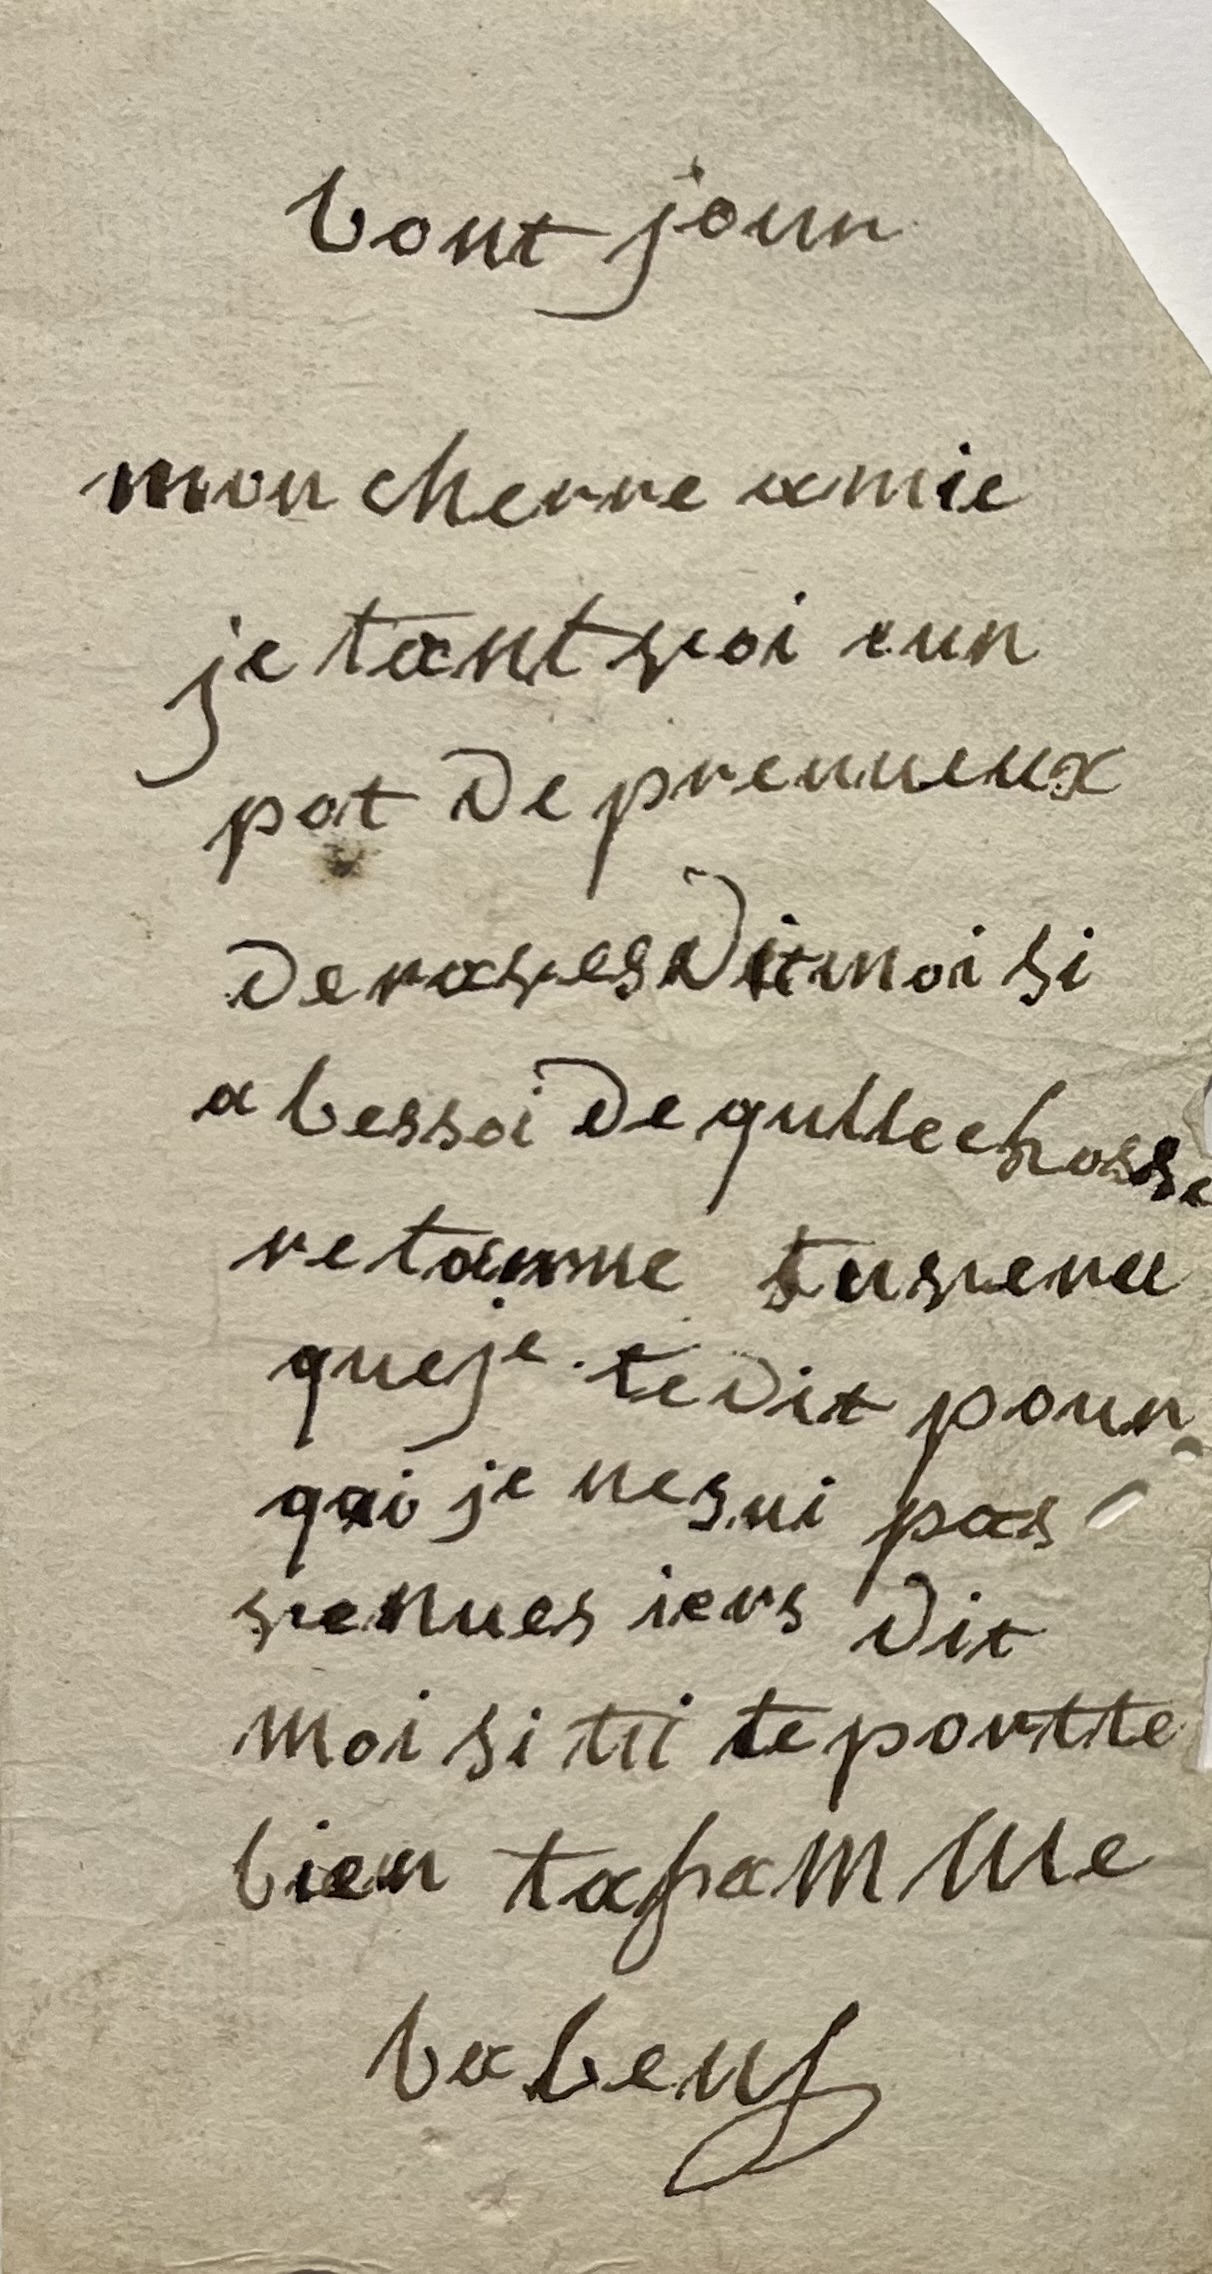 bont jour
mon cherre amie
je tant voi eun
pot de prenueux
de vosves dit moi si
a bessoi de qullechosse
retanne tuveru
queje te dit pour
qui je nesui pas
venues iers dit
moi si tu te portte
bien tafamme
babeuf